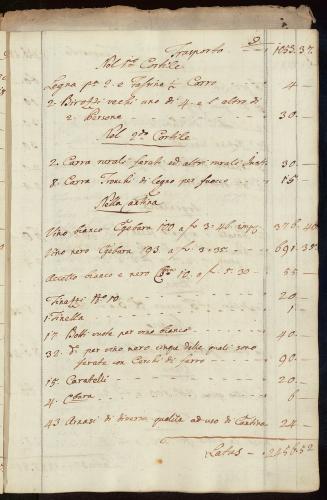 9
Trasporto 1053.37.
Nel 1mo Cortile
Legna pti 2. e Fassina 1/2 Carro 4.
2. Birozzi vechi uno di 4. e l'altro di
2 persone 30.
Nel 2do Cortile
2. Carra rurali ferati ed altri rurali 30.
8. Carra Tronchi di legno per fuoco 15.
Nella Cantina
Vino bianco 120 a f 3:46 376.40
Vino nero 193. a f 3:35 691.35
Acetto bianco e nero 10. a f 5.30 55
Tinazzi No 10. 20.
1. Tinella 1
17. Botti vuote per vino bianco 40.
32. di per vino nero cinque delle quali sono
ferate con Cerchi di ferro 90.
15. Caratelli 20.
4. 6
43. Arnasi di diversa qualità ad uso di Cantina 24
Latus 2456.52